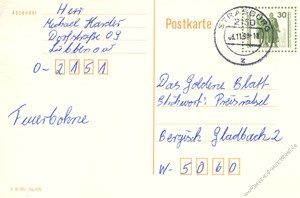 Absender
Herr
Michael Harder
Dorfstraße 09
Lübbenow
O-2151
Feuerbohne
Postkarte
STRASBURG
2150
30
Das Goldene Blatt
Stichwort: Preisrätsel
Bergisch Gladbach 2
W-5060